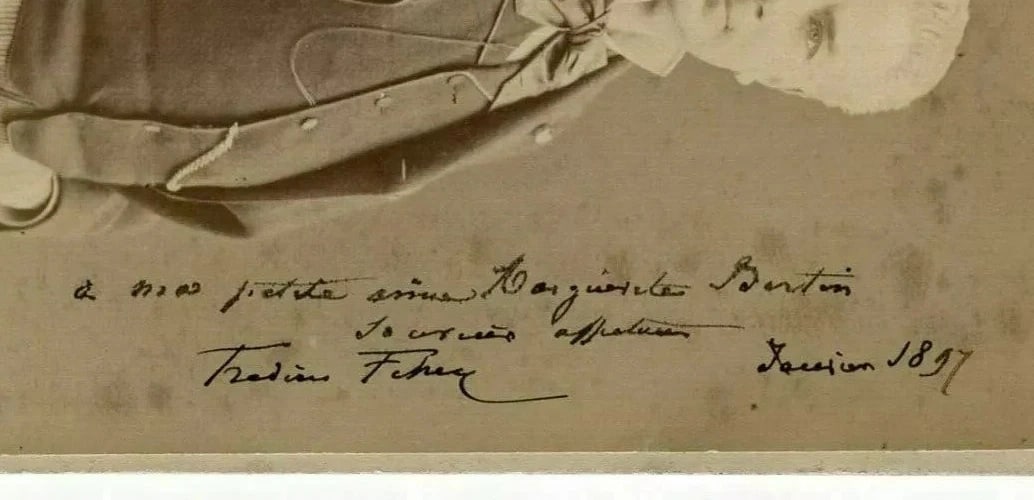 à ma petite amie Marguerite Bertin
Souvenir affectueux
Janvier 1897